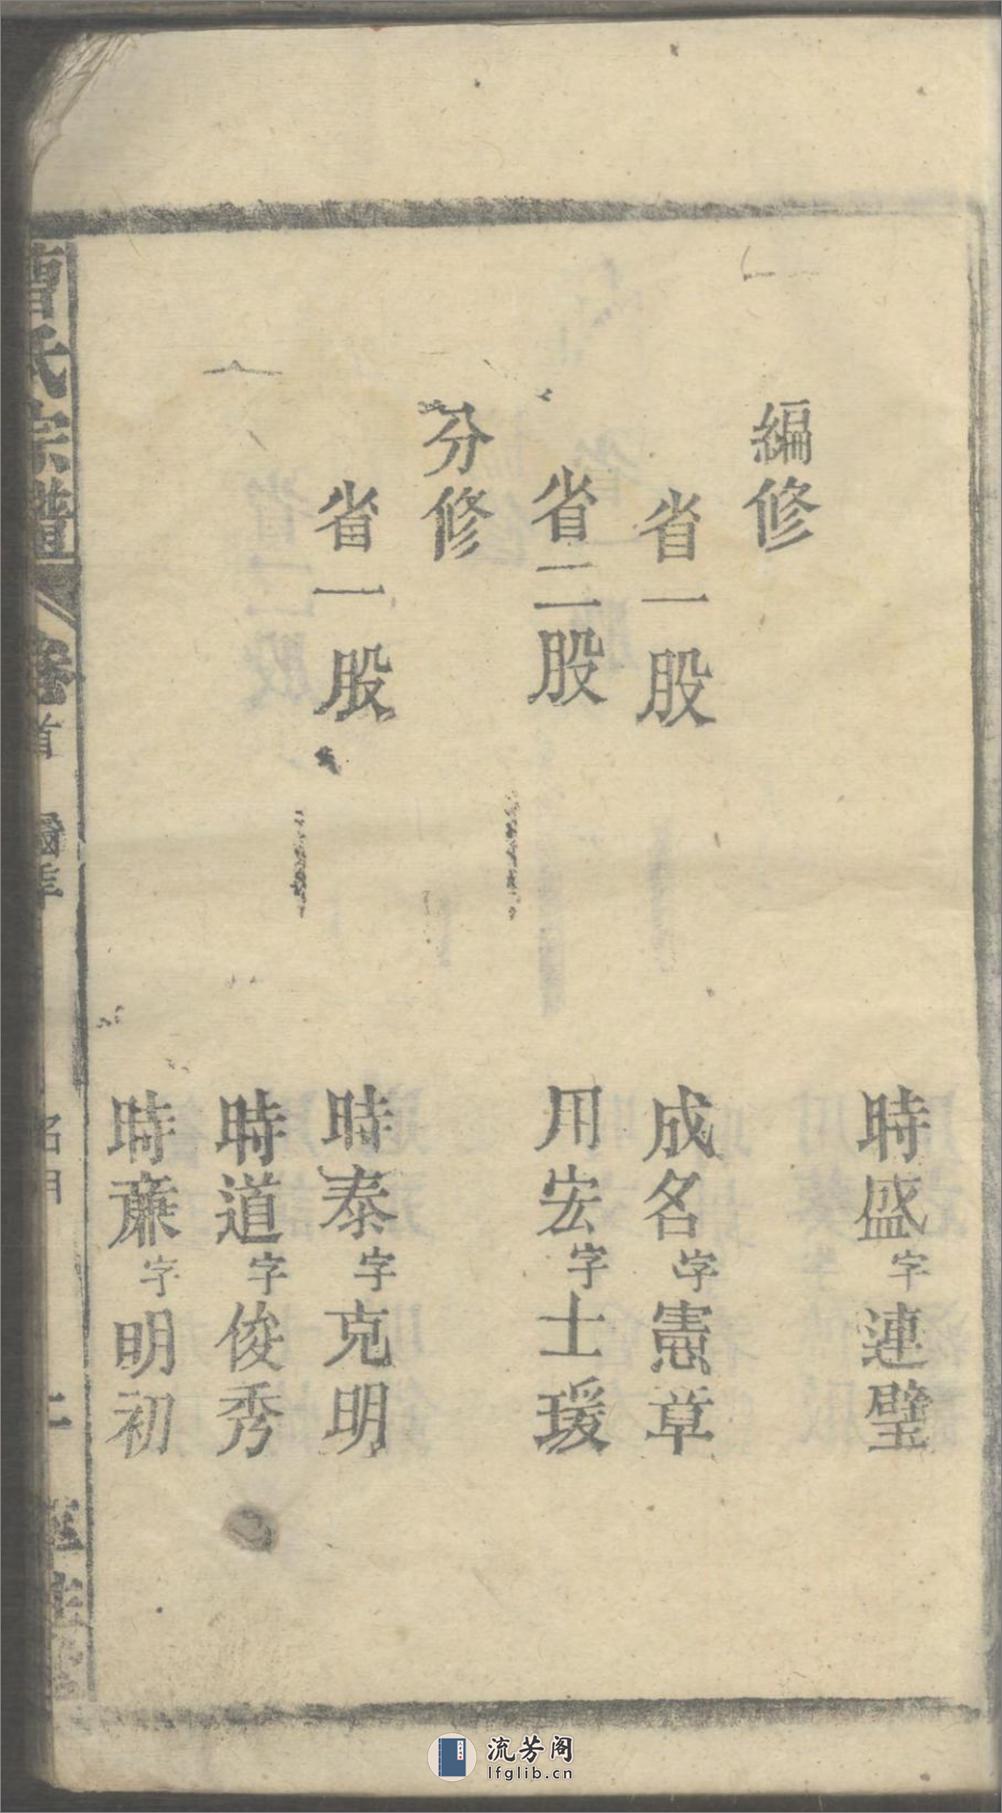 時盛字連璧
編修
省一股 成名字憲章
省二股 用宏字士瑗
分修
省一股 時泰字克明
時道字俊秀
時亷字明初
曹氏宗譜 卷首
流芳阁
lfglib.cn